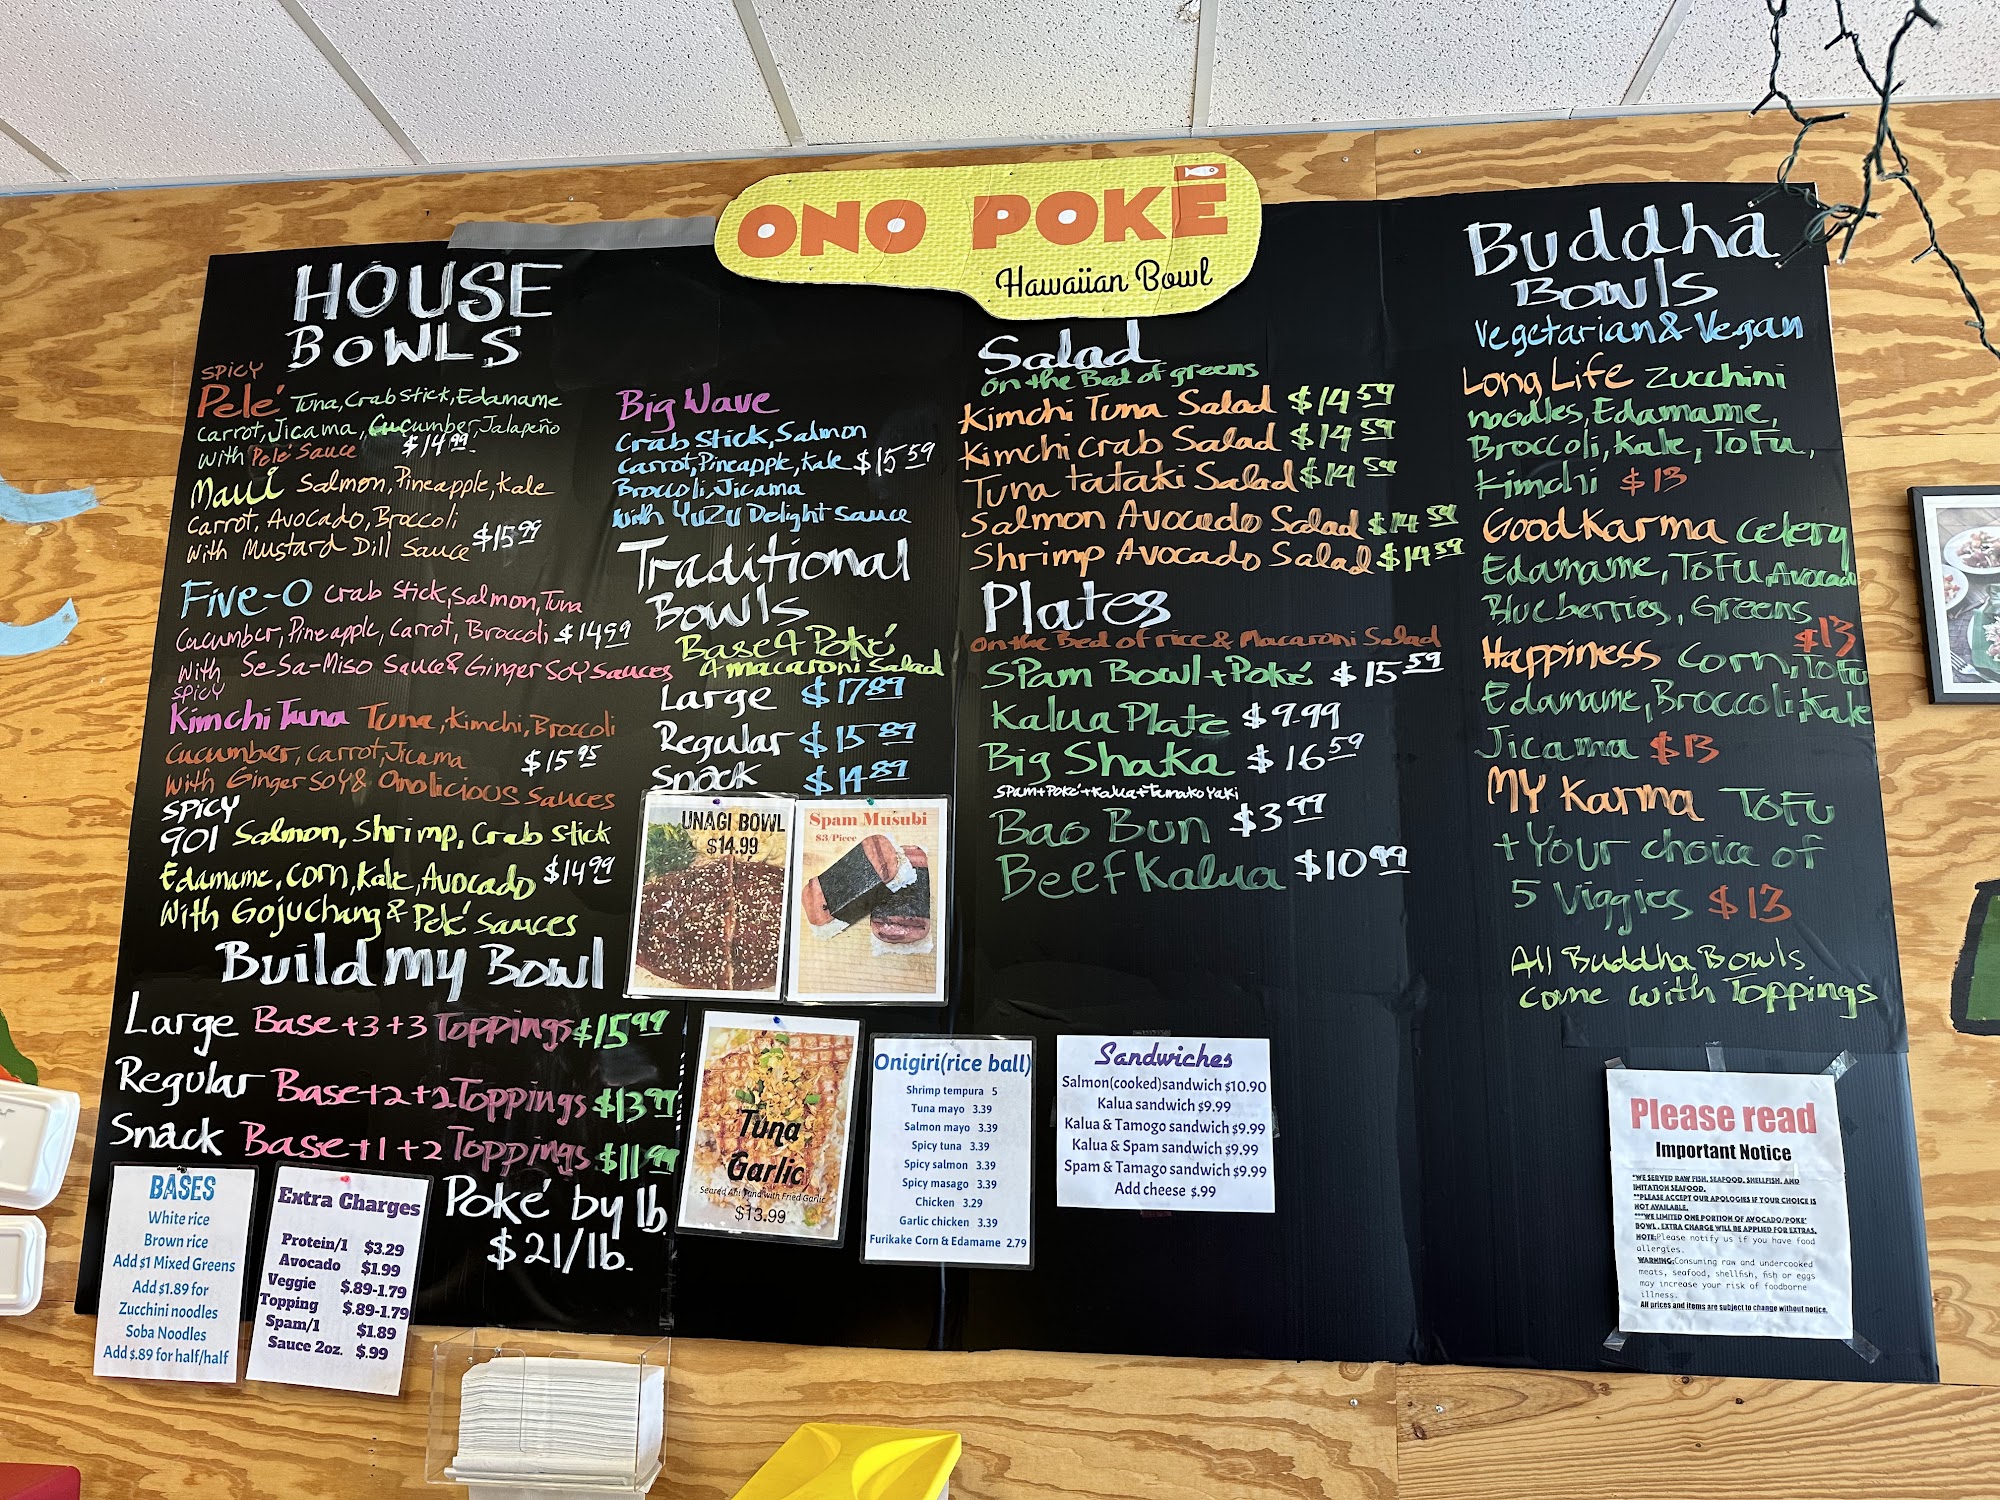 ONO POKÉ
Hawaiian Bowl
HOUSE
BOWLS
SPICY
Pelé Tuna, Crab Stick, Edamame
Carrot, Jicama, Cucumber, Jalapeño
With Pelé Sauce $14.99
Maui Salmon, Pineapple, Kale
Carrot, Avocado, Broccoli
With Mustard Dill Sauce $15.99
Five-O Crab Stick, Salmon, Tuna
Cucumber, Pineapple, Carrot, Broccoli $14.99
With SeSa-Miso Sauce & Ginger Soy Sauces
SPICY
Kimchi Tuna Tuna, Kimchi, Broccoli
Cucumber, Carrot, Jicama $15.95
With Ginger Soy & Onolicious Sauces
SPICY
901 Salmon, Shrimp, Crab Stick
Edamame, Corn, Kale, Avocado $14.99
With Gojuchang & Pelé Sauces
Build my Bowl
Large Base+3+3 Toppings $15.99
Regular Base+2+2 Toppings $13.99
Snack Base+1+2 Toppings $11.99
Poké by lb.
$21/lb.
BASES
White rice
Brown rice
Add $1 Mixed Greens
Add $1.89 for
Zucchini noodles
Soba Noodles
Add $.89 for half/half
Extra Charges
Protein/1 $3.29
Avocado $1.99
Veggie $.89-1.79
Topping $.89-1.79
Spam/1 $1.89
Sauce 2oz. $.99
Big Wave
Crab Stick, Salmon
Carrot, Pineapple, Kale $15.59
Broccoli, Jicama
With YUZU Delight Sauce
Traditional
Bowls
Base + Poké
+ macaroni Salad
Large $17.89
Regular $15.89
Snack $14.89
UNAGI BOWL
$14.99
Spam Musubi
$3/Piece
Tuna
Garlic
Seared Ahi Tuna with Fried Garlic
$13.99
Onigiri(rice ball)
Shrimp tempura 5
Tuna mayo 3.39
Salmon mayo 3.39
Spicy tuna 3.39
Spicy salmon 3.39
Spicy masago 3.39
Chicken 3.29
Garlic chicken 3.39
Furikake Corn & Edamame 2.79
Salad
on the Bed of greens
Kimchi Tuna Salad $14.59
Kimchi Crab Salad $14.59
Tuna tataki Salad $14.59
Salmon Avocado Salad $14.59
Shrimp Avocado Salad $14.59
Plates
On the Bed of rice & Macaroni Salad
Spam Bowl + Poké $15.59
Kalua Plate $9.99
Big Shaka $16.59
Spam+Poké+Kalua+Tamakoyaki
Bao Bun $3.99
Beef Kalua $10.99
Sandwiches
Salmon(cooked)sandwich $10.90
Kalua sandwich $9.99
Kalua & Tamogo sandwich $9.99
Kalua & Spam sandwich $9.99
Spam & Tamago sandwich $9.99
Add cheese $.99
Buddha
Bowls
Vegetarian & Vegan
Long Life Zucchini
noodles, Edamame,
Broccoli, Kale, ToFu,
Kimchi $13
Good Karma Celery
Edamame, ToFu, Avocado
Blueberries, Greens
$13
Happiness Corn, ToFu
Edamame, Broccoli, Kale
Jicama $13
MY Karma ToFu
+ Your choice of
5 Viggies $13
All Buddha Bowls
come with Toppings
Please read
Important Notice
*WE SERVED RAW FISH, SEAFOOD, SHELLFISH, AND
IMITATION SEAFOOD.
**PLEASE ACCEPT OUR APOLOGIES IF YOUR CHOICE IS
NOT AVAILABLE.
***WE LIMITED ONE PORTION OF AVOCADO/POKE'
BOWL. EXTRA CHARGE WILL BE APPLIED FOR EXTRAS.
NOTE:Please notify us if you have food
allergies.
WARNING:Consuming raw and undercooked
meats, seafood, shellfish, fish or eggs
may increase your risk of foodborne
illness.
All prices and items are subject to change without notice.